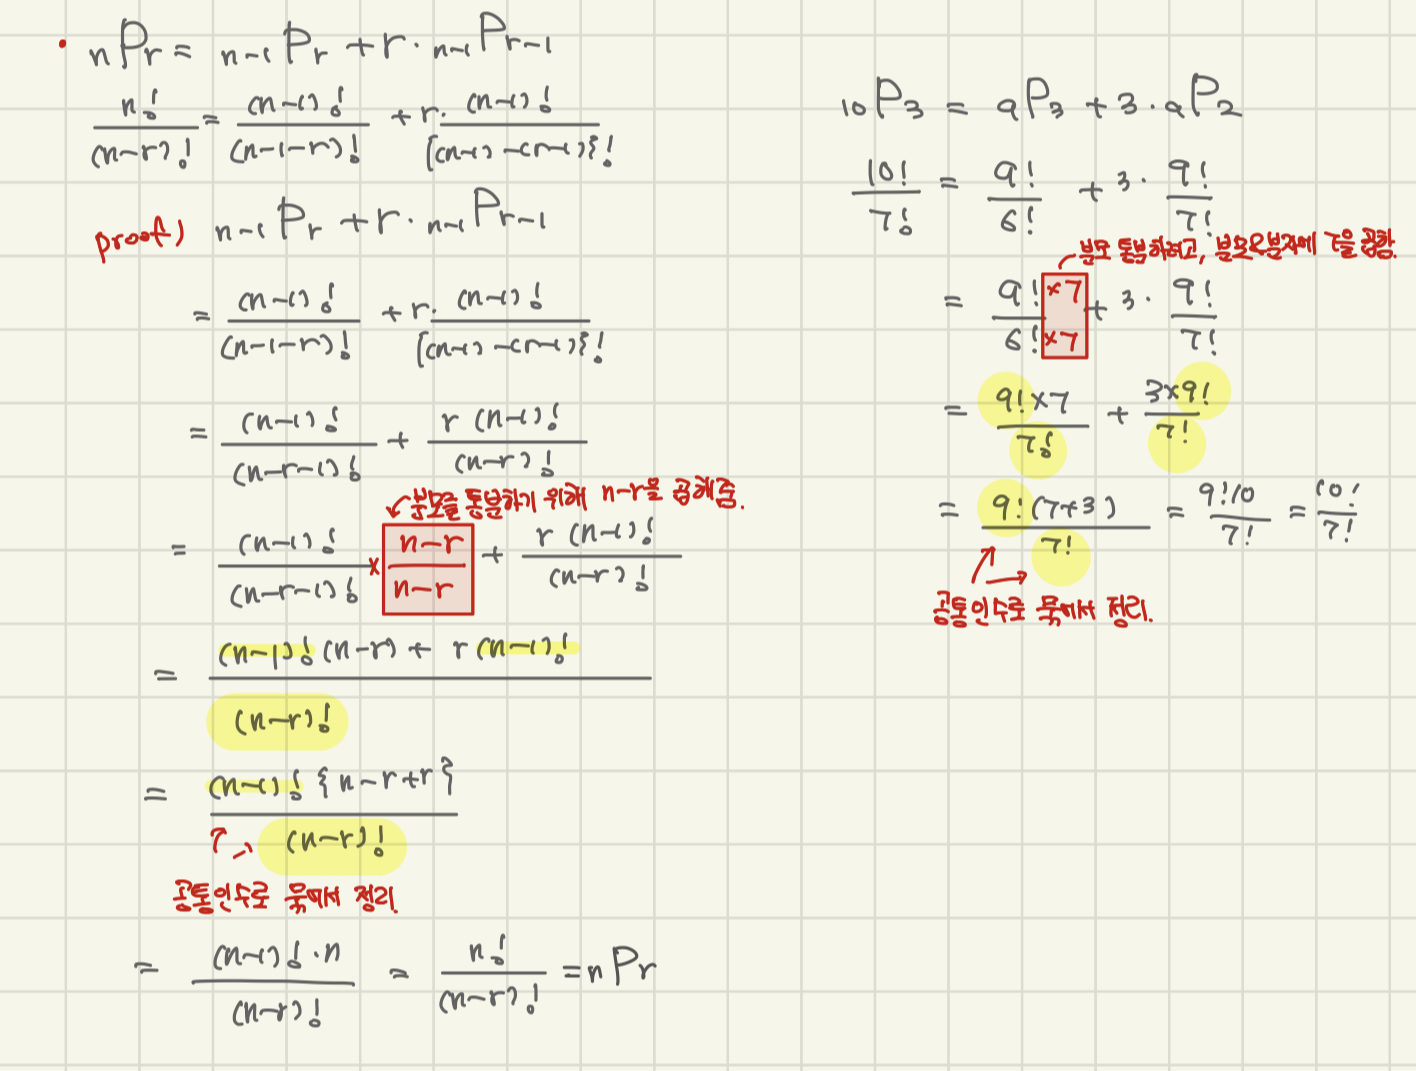 • nPr = n-1Pr + r · n-1Pr-1
n!/(n-r)! = (n-1)!/(n-1-r)! + r · (n-1)!/{(n-1)-(r-1)}!
proof) n-1Pr + r · n-1Pr-1
= (n-1)!/(n-1-r)! + r · (n-1)!/{(n-1)-(r-1)}!
= (n-1)!/(n-r-1)! + r(n-1)!/(n-r)!
분모를 통분하기 위해 n-r을 곱해줌.
= (n-1)!/(n-r-1)! × (n-r)/(n-r) + r(n-1)!/(n-r)!
= {(n-1)!(n-r) + r(n-1)!}/(n-r)!
= (n-1)!{n-r+r}/(n-r)!
공통인수로 묶어서 정리.
= (n-1)!·n/(n-r)! = n!/(n-r)! = nPr
10P3 = 9P3 + 3·9P2
10!/7! = 9!/6! + 3·9!/7!
분모 통분하려고, 분모&분자에 7을 곱함.
= 9!×7/6!×7 + 3·9!/7!
= 9!×7/7! + 3×9!/7!
= 9!(7+3)/7! = 9!10/7! = 10!/7!
공통인수로 묶어서 정리.